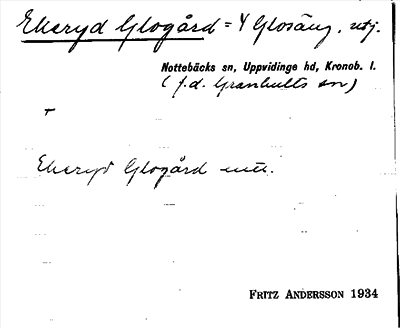 Ekeryd Glogård = 4 Glosäng, utj.
Nottebäcks sn, Uppvidinge hd, Kronob. l.
(f.d. Granhults sn)
Ekeryd Glogård
FRITZ ANDERSSON 1934